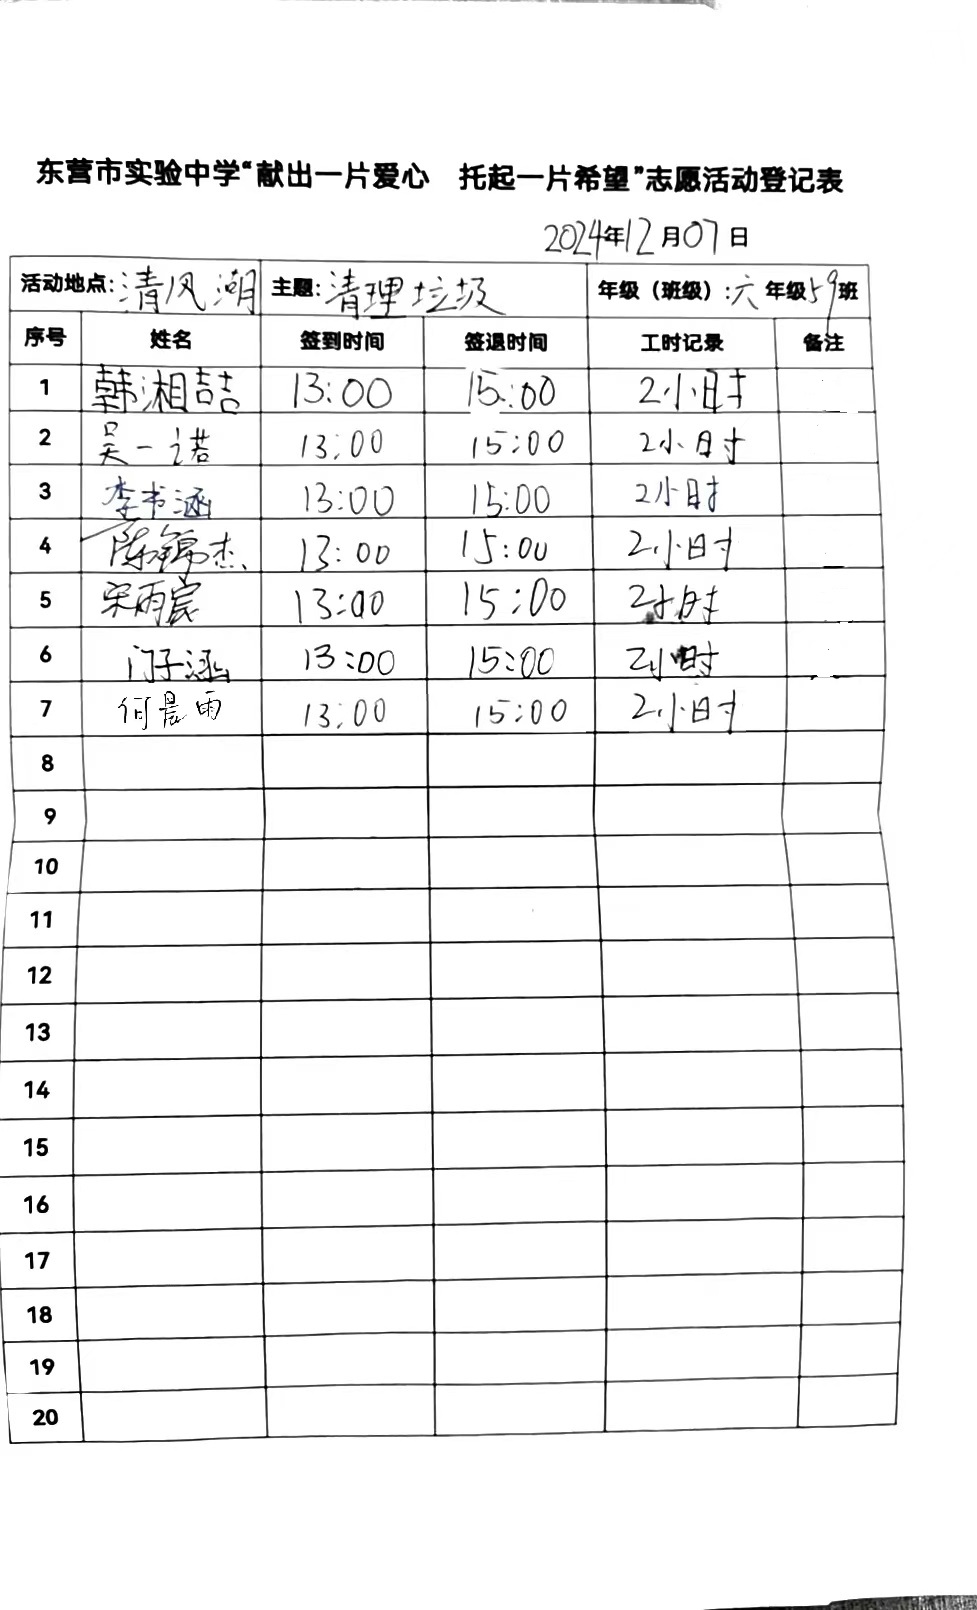 东营市实验中学“献出一片爱心 托起一片希望”志愿活动登记表
2024年12月07日
活动地点:清风湖 主题:清理垃圾 年级（班级）:六年级59班
序号 姓名 签到时间 签退时间 工时记录 备注
1 韩湘喆 13:00 15:00 2小时
2 吴一诺 13:00 15:00 2小时
3 李书涵 13:00 15:00 2小时
4 陈锦杰 13:00 15:00 2小时
5 宋雨宸 13:00 15:00 2小时
6 门子涵 13:00 15:00 2小时
7 何晨雨 13:00 15:00 2小时
8
9
10
11
12
13
14
15
16
17
18
19
20